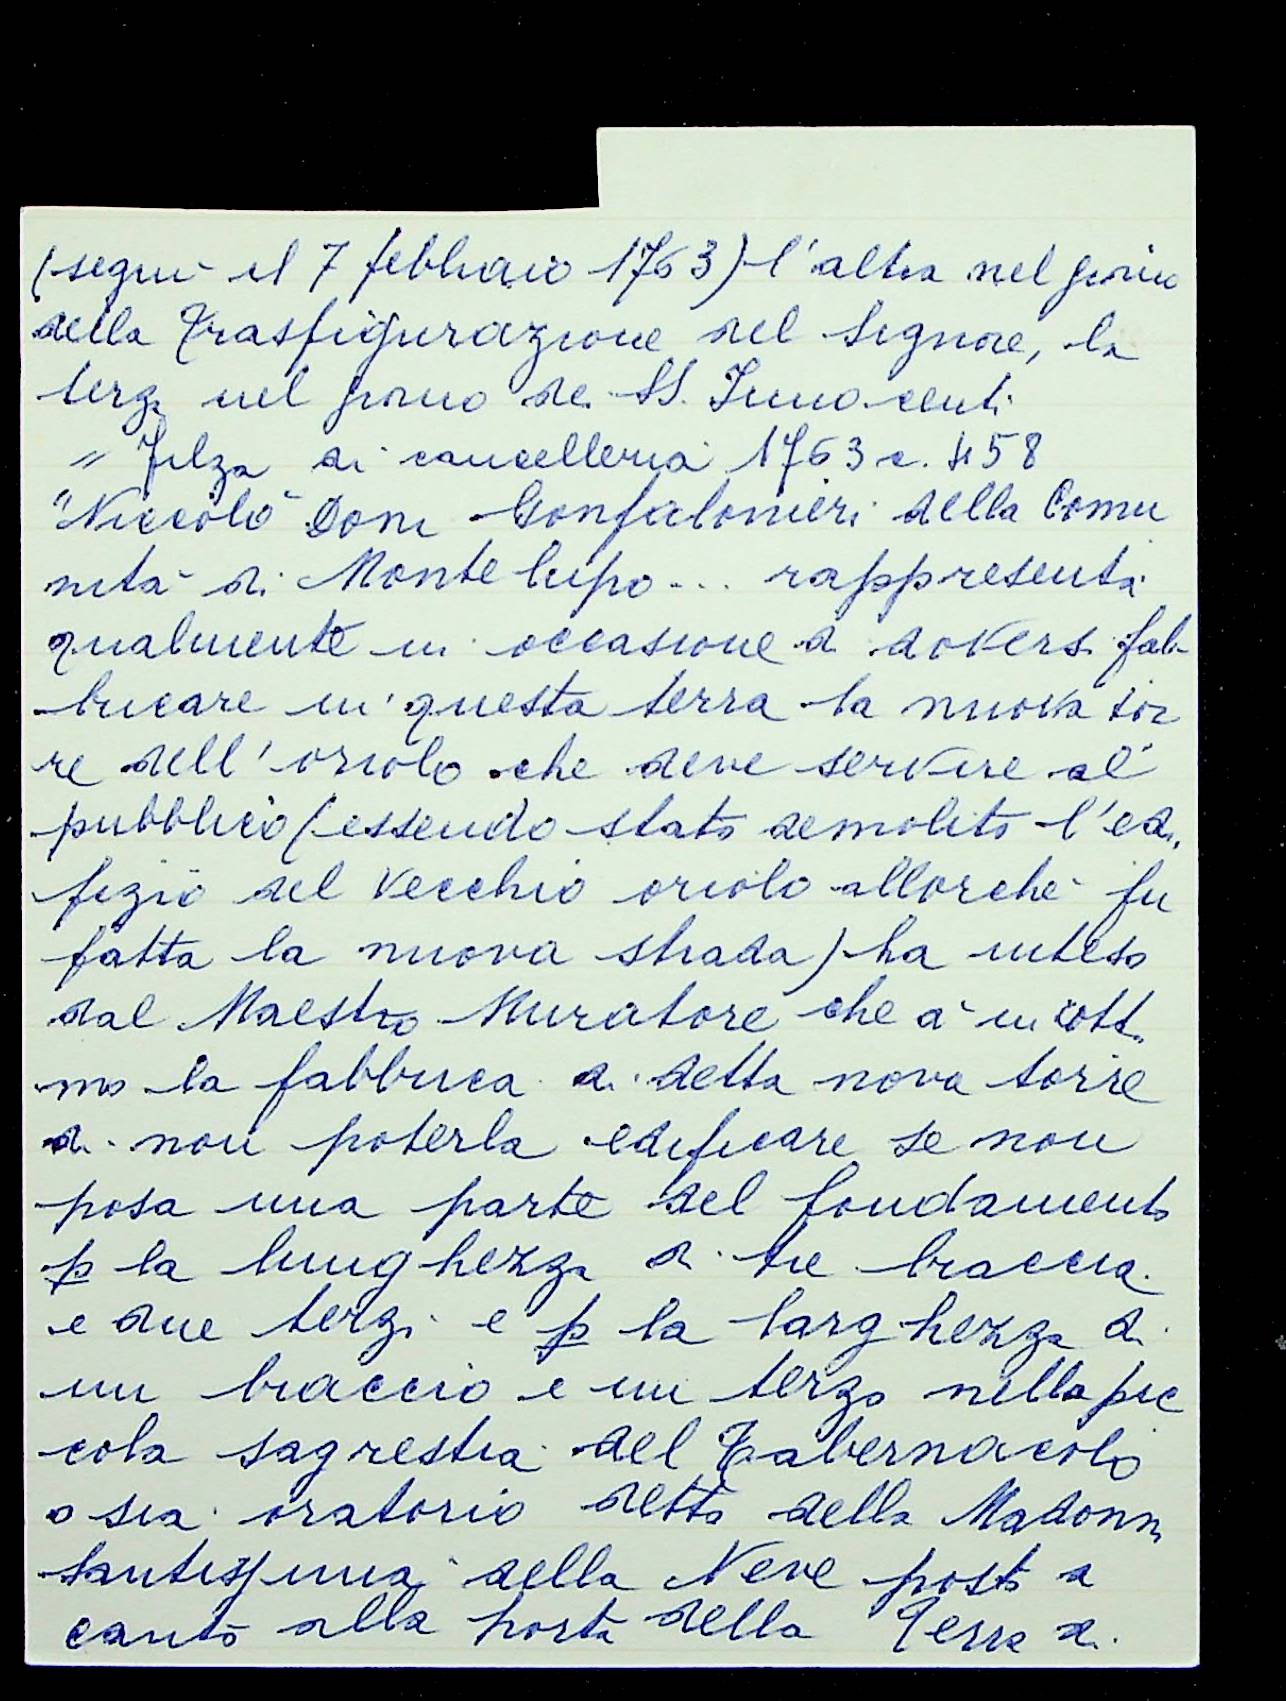 (seguì il 7 febbraio 1763) l'altra nel giorno
della Trasfigurazione del Signore, la
terza nel giorno de SS. Innocenti
" Filza di cancelleria 1763 c. 458
"Niccolò Doni Gonfalonieri della Comu
nità di Montelupo... rappresenta
qualmente in occasione di doversi fab-
bricare in questa terra la nuova tor
re dell'oriolo che deve servire al
pubblico (essendo stato demolito l'edi-
fizio del vecchio oriolo allorchè fu
fatta la nuova strada) ha inteso
dal Maestro Muratore che à in cotti
mo la fabbrica di detta nova torre
di non poterla edificare se non
posa una parte del fondamento
p la lunghezza di tre braccia
e due terzi e p la larghezza di
un braccio e un terzo nella pic
cola sagrestia del Tabernacolo
o sia oratorio detto della Madonna
Santissima della Neve posto a
canto alla porta della Terra di